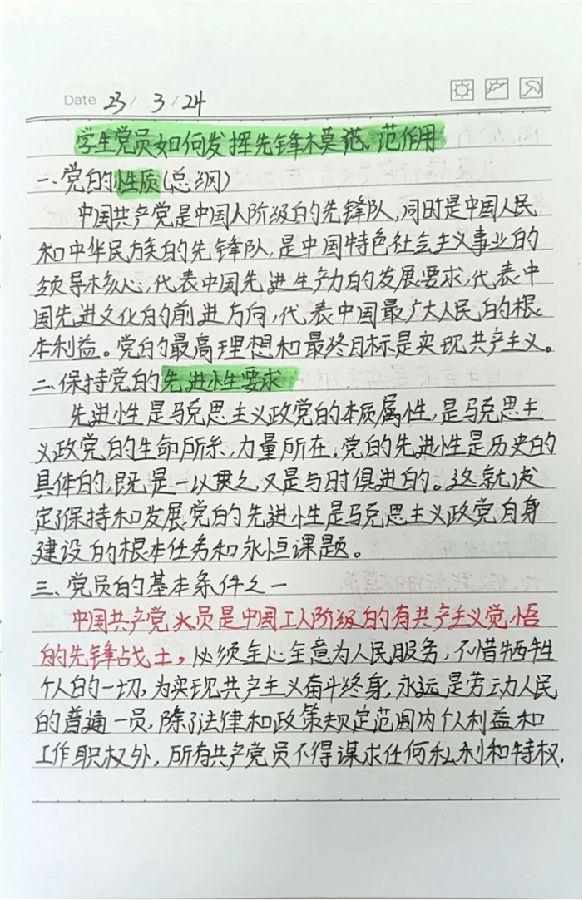 Date 23/ 3/24
学生党员如何发挥先锋模范、范作用
一、党的性质(总纲)
中国共产党是中国人阶级的先锋队,同时是中国人民
和中华民族的先锋队,是中国特色社会主义事业的
领导核心,代表中国先进生产力的发展要求,代表中
国先进文化的前进方向,代表中国最广大人民的根
本利益。党的最高理想和最终目标是实现共产主义。
二、保持党的先进性要求
先进性是马克思主义政党的本质属性,是马克思主
义政党的生命所系,力量所在,党的先进性是历史的
具体的,既是一以贯之又是与时俱进的。这就决
定了保持和发展党的先进性是马克思主义政党自身
建设的根本任务和永恒课题。
三、党员的基本条件之一
中国共产党党员是中国工人阶级的有共产主义觉悟
的先锋战士,必须全心全意为人民服务,不惜牺牲
个人的一切,为实现共产主义奋斗终身,永远是劳动人民
的普通一员,除了法律和政策规定范围内个人利益和
工作职权外,所有共产党员不得谋求任何私利和特权.